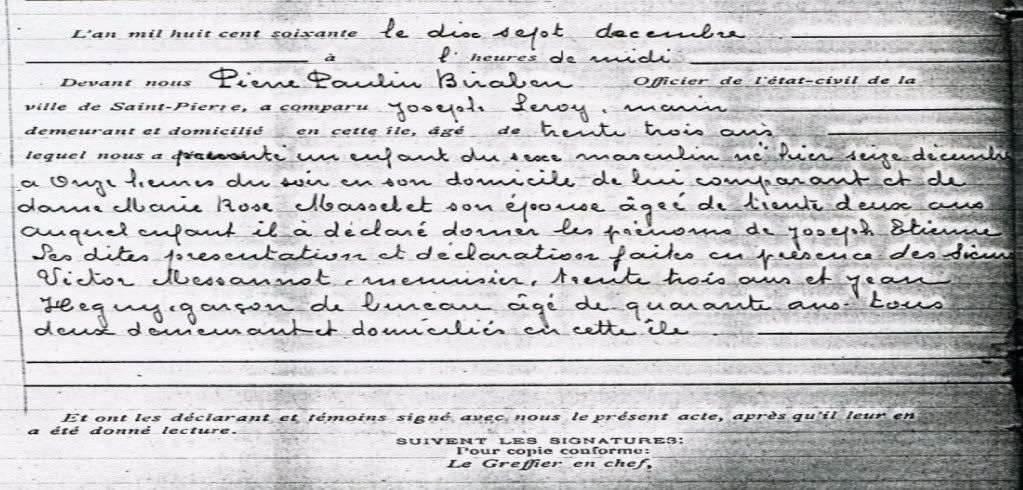 L'an mil huit cent soixante le dix sept decembre
à l' heures de midi
Devant nous Pierre Paulin Biraben Officier de l'état-civil de la
ville de Saint-Pierre, a comparu Joseph Leroy, marin
demeurant et domicilié en cette île, âgé de trente trois ans
lequel nous a présenté un enfant du sexe masculin né hier seize décembre
a Onze heures du soir en son domicile de lui comparant et de
dame Marie Rose Masselet son épouse âgeé de trente deux ans
auquel enfant il à déclaré donner les prénoms de Joseph Etienne
Les dites presentation et déclaration faites en présence des Sieurs
Victor Messannot, menuisier, trente trois ans et Jean
Heguy, garçon de bureau âgé de quarante ans tous
deux demeurant et domiciliés en cette île
Et ont les déclarant et témoins signé avec nous le présent acte, après qu'il leur en
a été donné lecture.
SUIVENT LES SIGNATURES:
Pour copie conforme:
Le Greffier en chef,